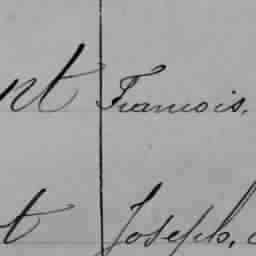 nt Francois.
t Joseph,